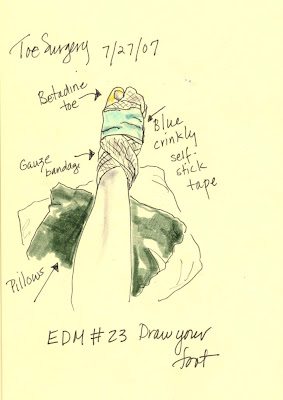 Toe Surgery 7/27/07
Betadine
toe
Blue
crinkly
self-
stick
tape
Gauze
bandage
Pillows
EDM #23 Draw your
foot